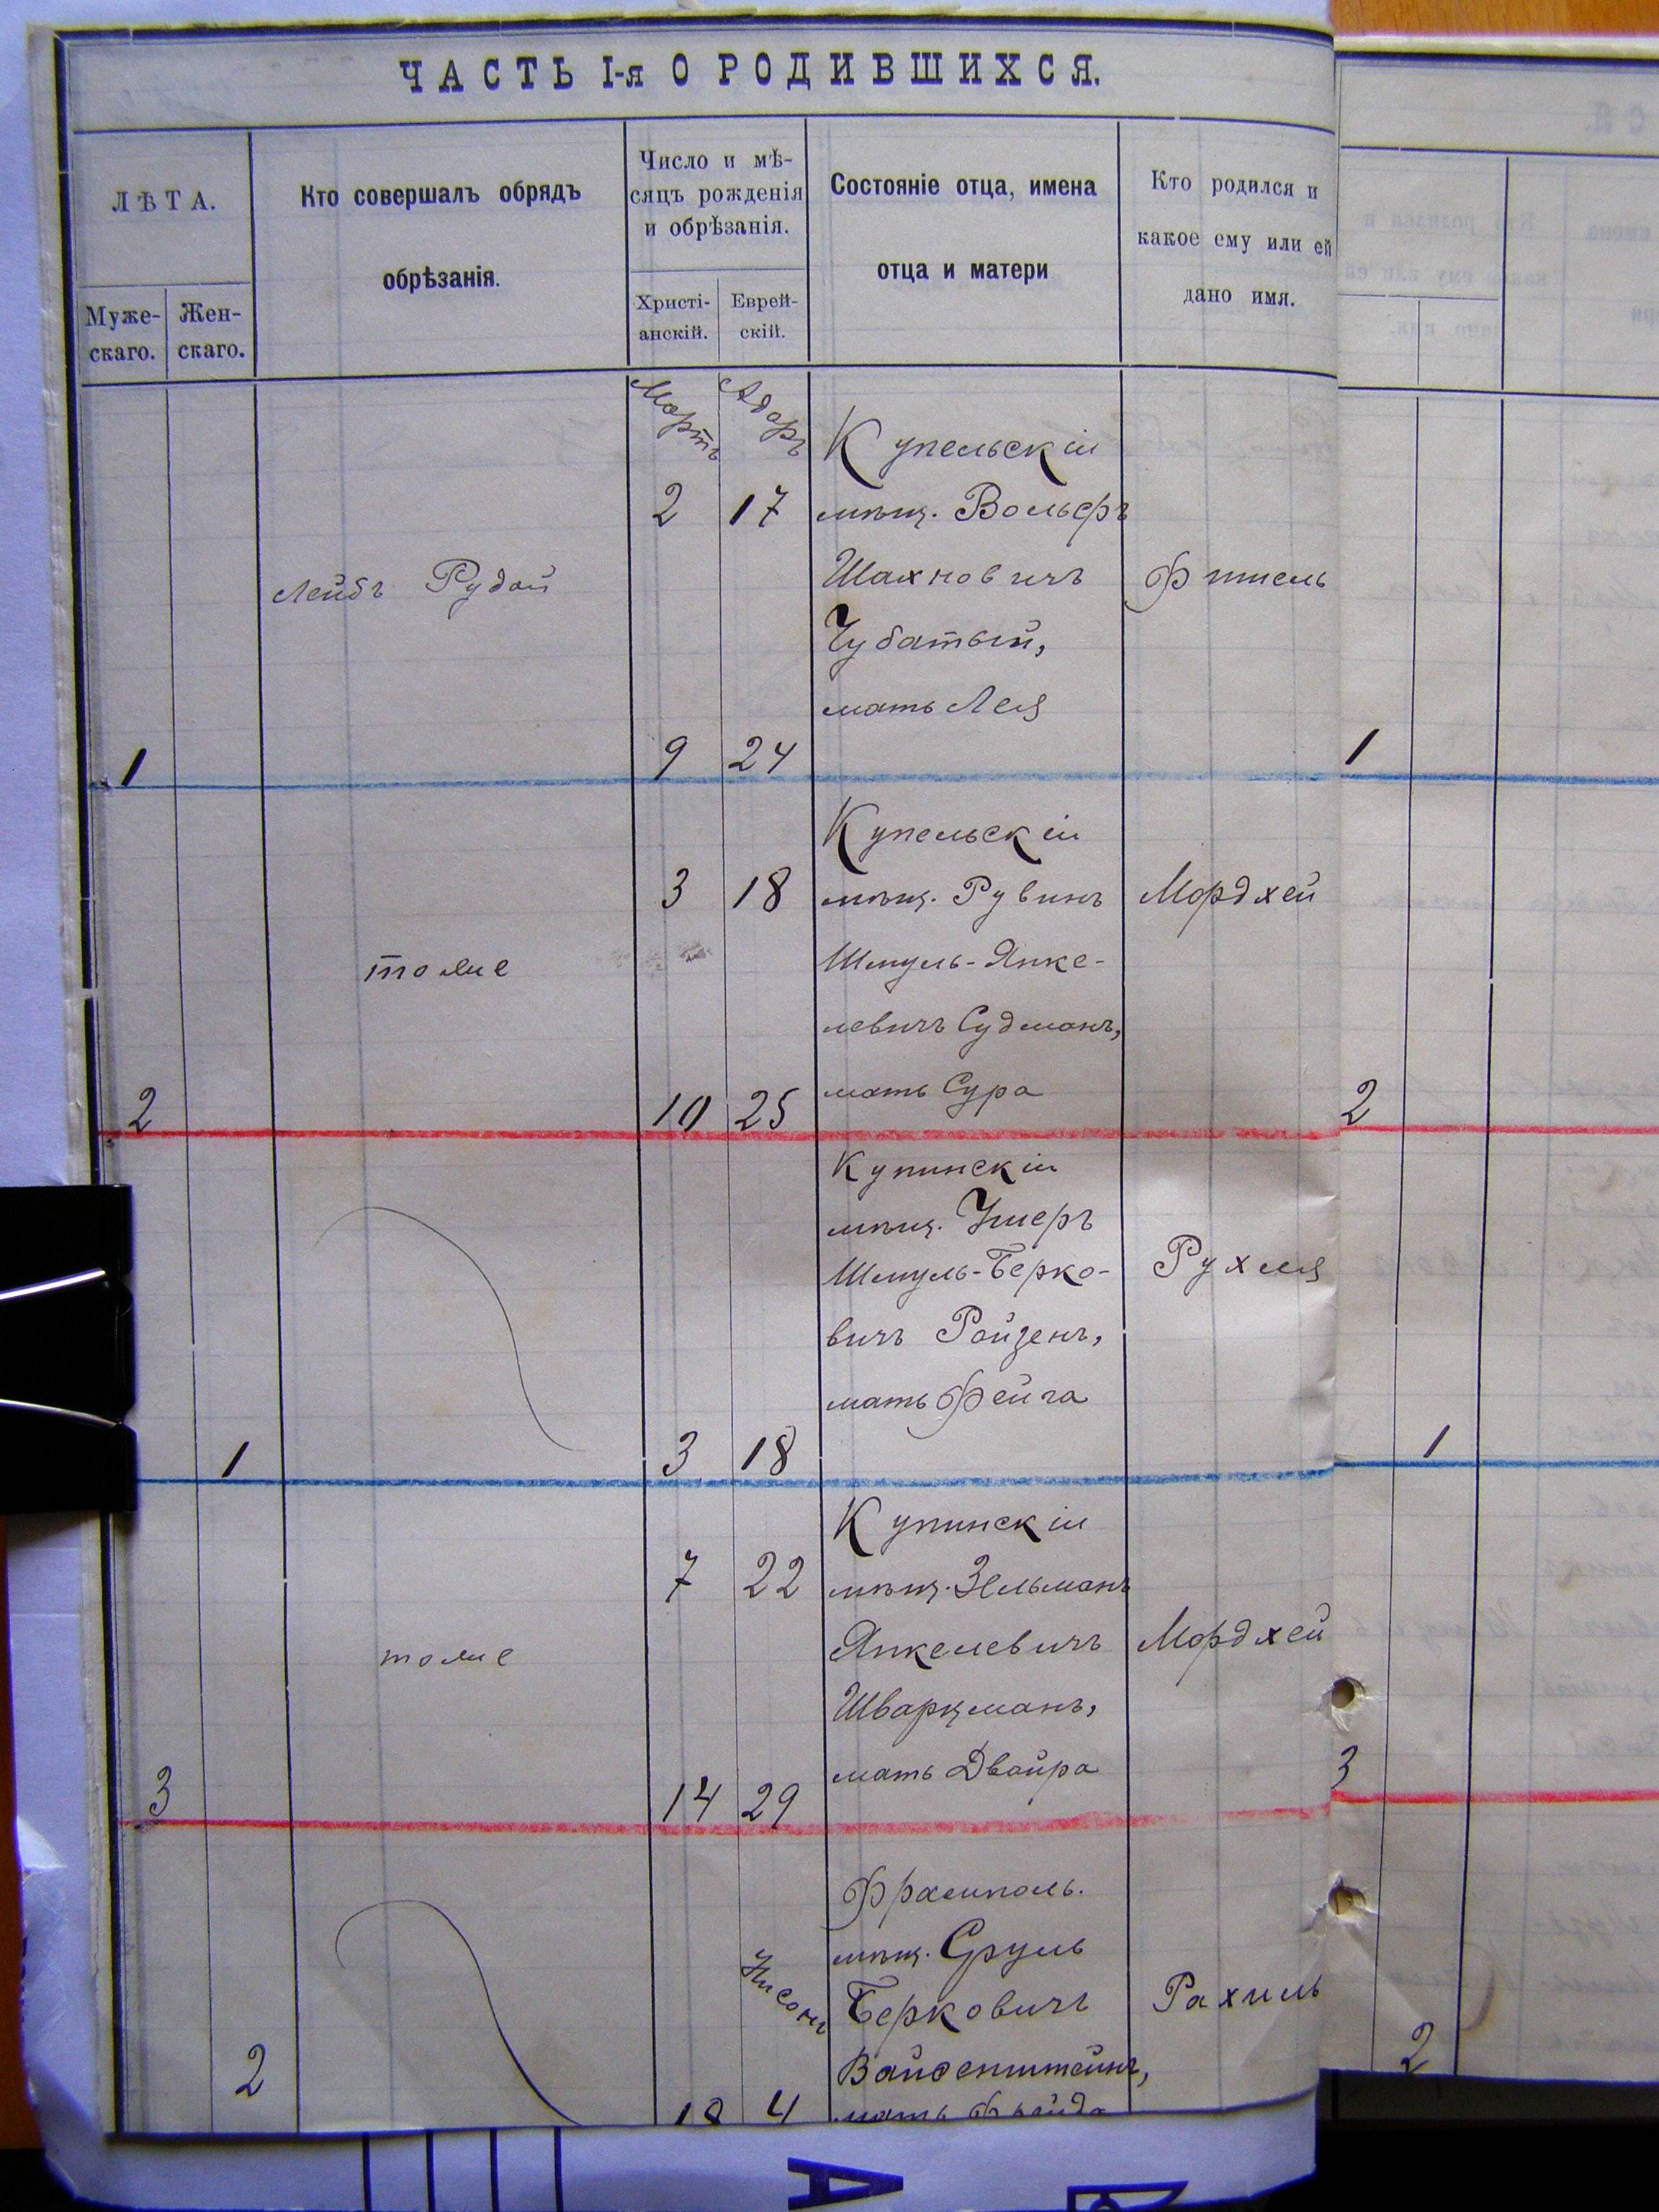 ЧАСТЬ I-я О РОДИВШИХСЯ.
ЛѢТА.
Муже-
скаго.
Жен-
скаго.
Кто совершалъ обрядъ
обрѣзанія.
Число и мѣ-
сяцъ рожденія
и обрѣзанія.
Христі-
анскій.
Еврей-
скій.
Состояніе отца, имена
отца и матери
Кто родился и
какое ему или ей
дано имя.
Мартъ Адаръ
Купельскій
2 17 мѣщ. Вольфъ
Лейбъ Рудой Шахновичъ Фишель
Чубатый,
мать Лея
1 9 24 1
Купельскій
3 18 мѣщ. Рувинъ Мордхей
тоже Шмуль-Янке-
левичъ Судманъ,
мать Сура
2 10 25 2
Купинскій
мѣщ. Ушеръ
Шмуль-Берко- Рухля
вичъ Ройзенъ,
мать Фейга
1 3 18 1
Купинскій
7 22 мѣщ. Зельманъ
тоже Янкелевичъ Мордхей
Шварцманъ,
мать Двойра
3 14 29 3
Фрампол.
мѣщ. Сруль
Нисонъ Берковичъ Рахиль
Вайсенштейнъ,
2 18 4 мать 2
А